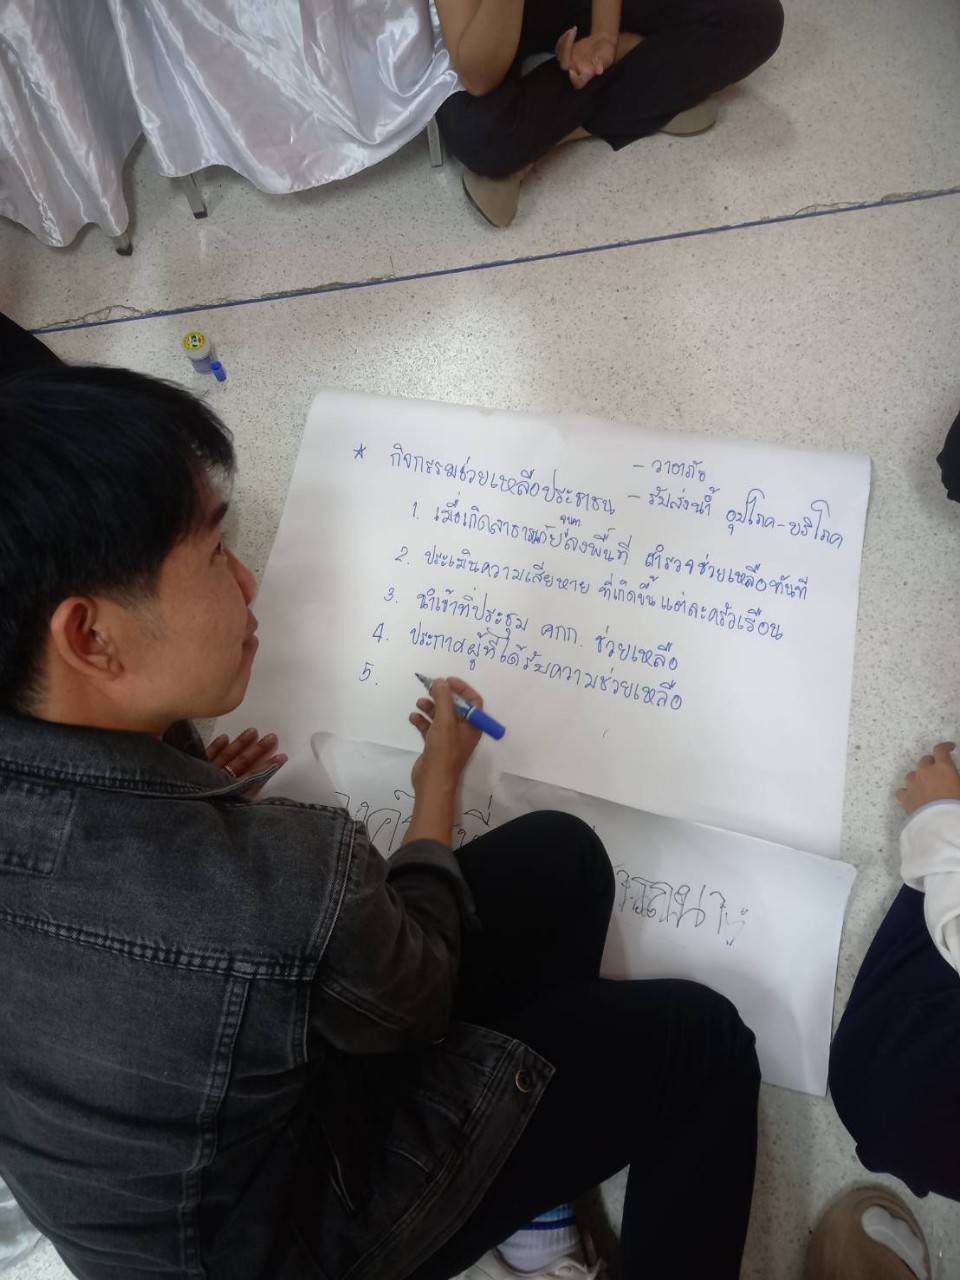 * กิจกรรมช่วยเหลือประชาชน
- วาตภัย
- รับส่งน้ำ อุปโภค-บริโภค
1. เมื่อเกิดสาธารณภัย ลงพื้นที่ สำรวจช่วยเหลือทันที
2. ประเมินความเสียหาย ที่เกิดขึ้นแต่ละครัวเรือน
3. นำเข้าที่ประชุม คกก. ช่วยเหลือ
4. ประกาศผู้ที่ได้รับความช่วยเหลือ
5.